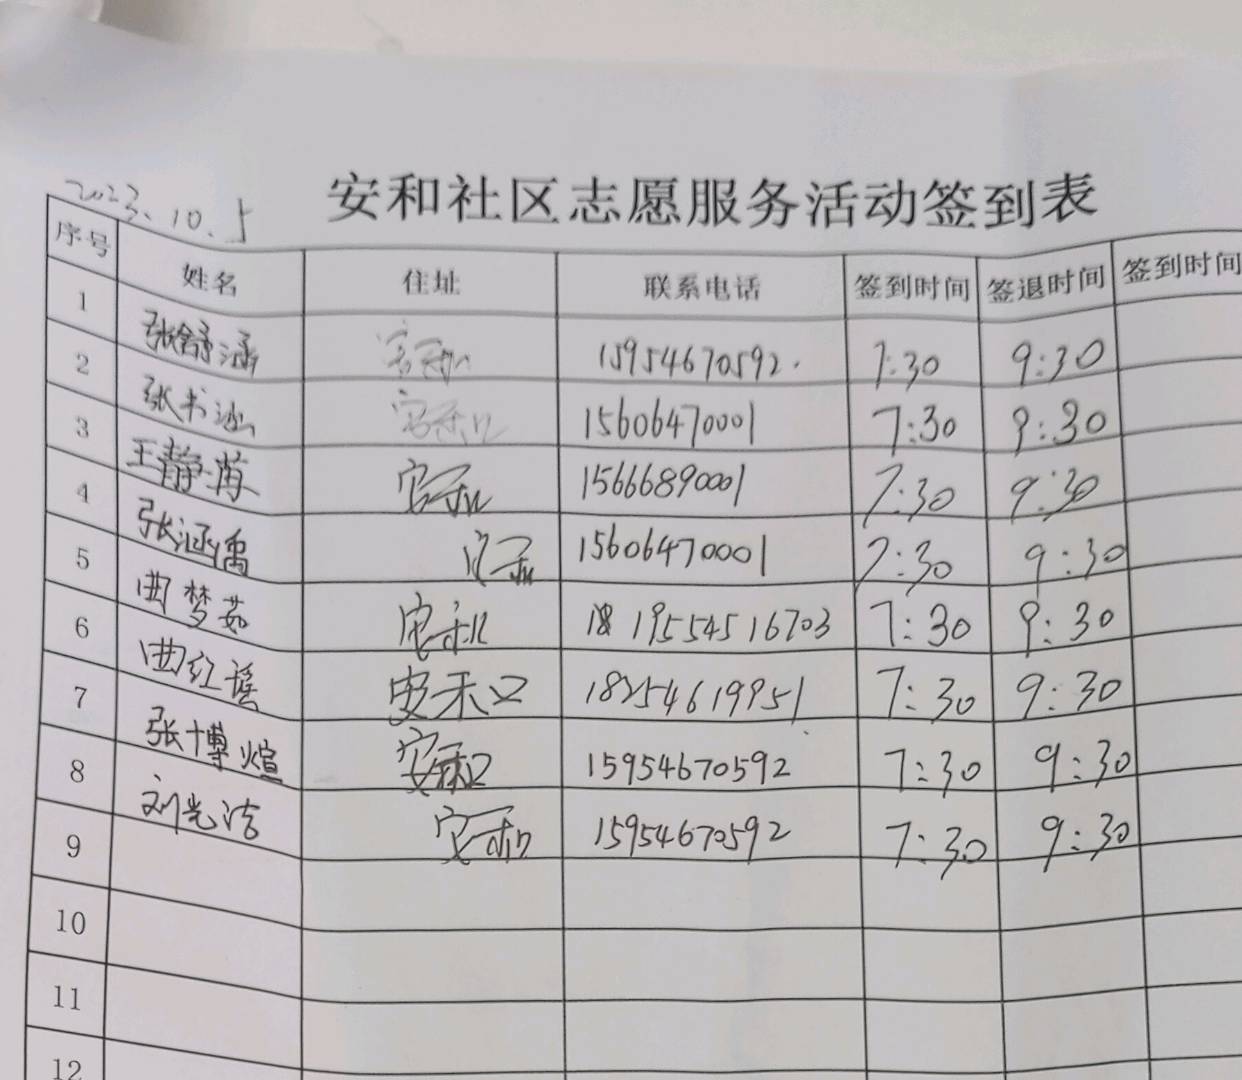 安和社区志愿服务活动签到表
2023.10.5
序号 姓名 住址 联系电话 签到时间 签退时间 签到时间
1 张舒涵 安和 15954670592. 7:30 9:30
2 张书涵 安和 15606470001 7:30 9:30
3 王静蕅 安和 15666890001 7:30 9:30
4 张涵禹 安和 15606470001 7:30 9:30
5 曲梦茹 安和 19554516703 7:30 9:30
6 曲红瑶 安禾口 18254619951 7:30 9:30
7 张博煊 安和 15954670592 7:30 9:30
8 刘光洁 安和 15954670592 7:30 9:30
9
10
11
12